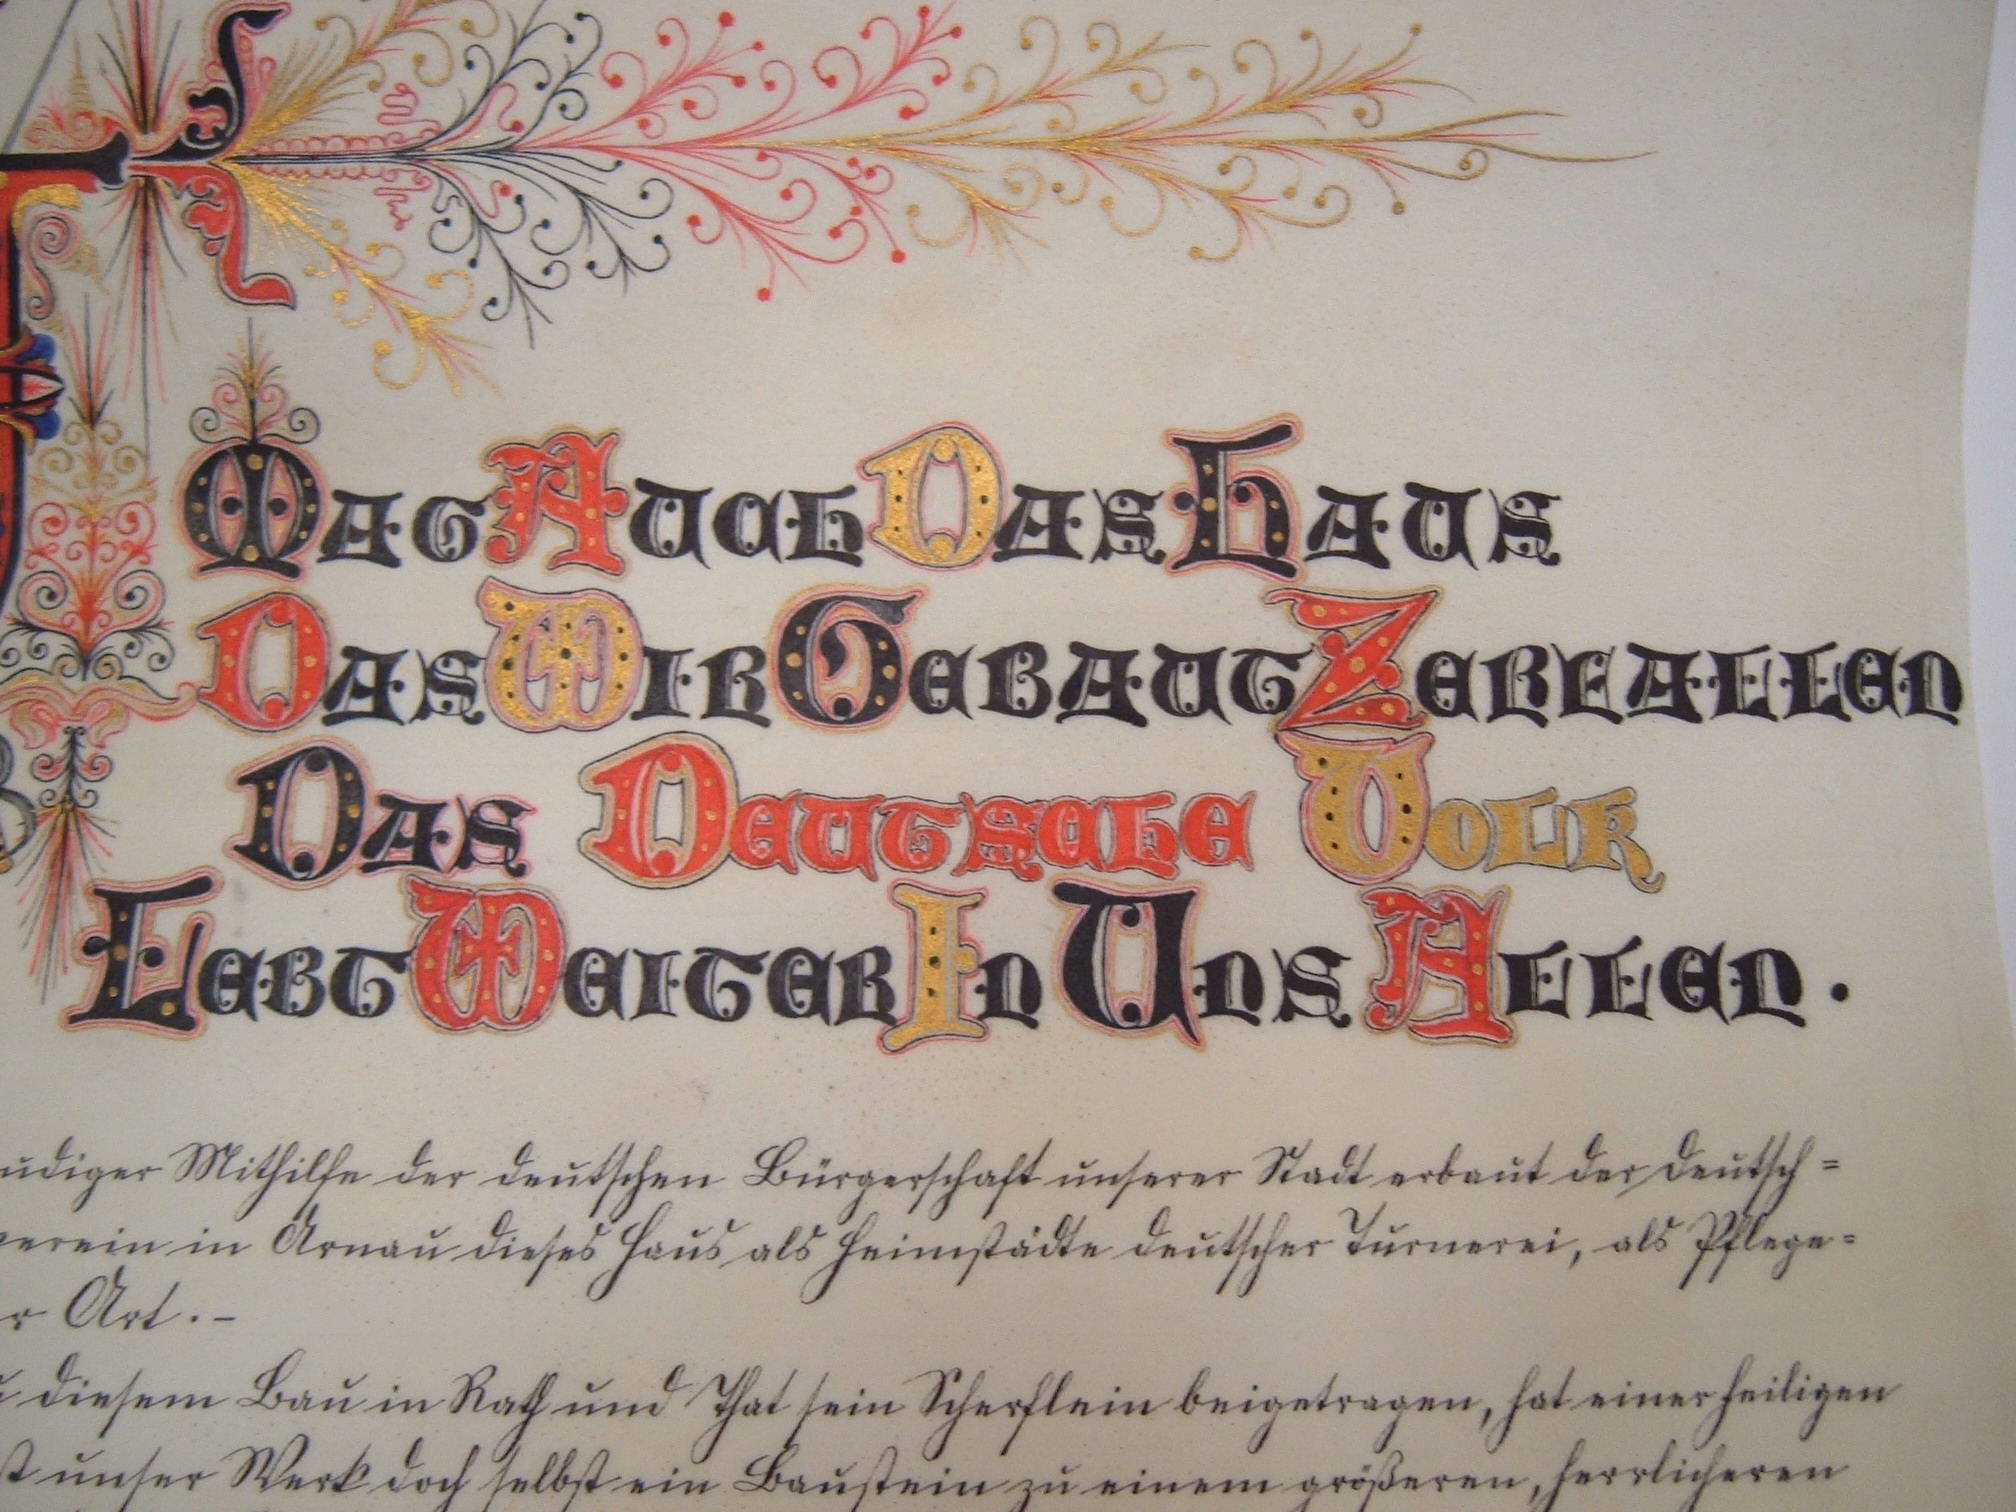 Mag Auch Das Haus
Das Wir Gebaut Zerfallen
Das Deutsche Volk
Lebt Weiter In Uns Allen.
udiger Mithilfe der deutschen Bürgerschaft unserer Stadt erbaut der Deutsch=
verein in Arnau dieses Haus als Heimstädte deutscher Turnerei, als Pflege=
r Art.–
u diesem Bau in Rath und That sein Scherflein beigetragen, hat einer heiligen
st unser Werk doch selbst ein Baustein zu einem größeren, herrlicheren